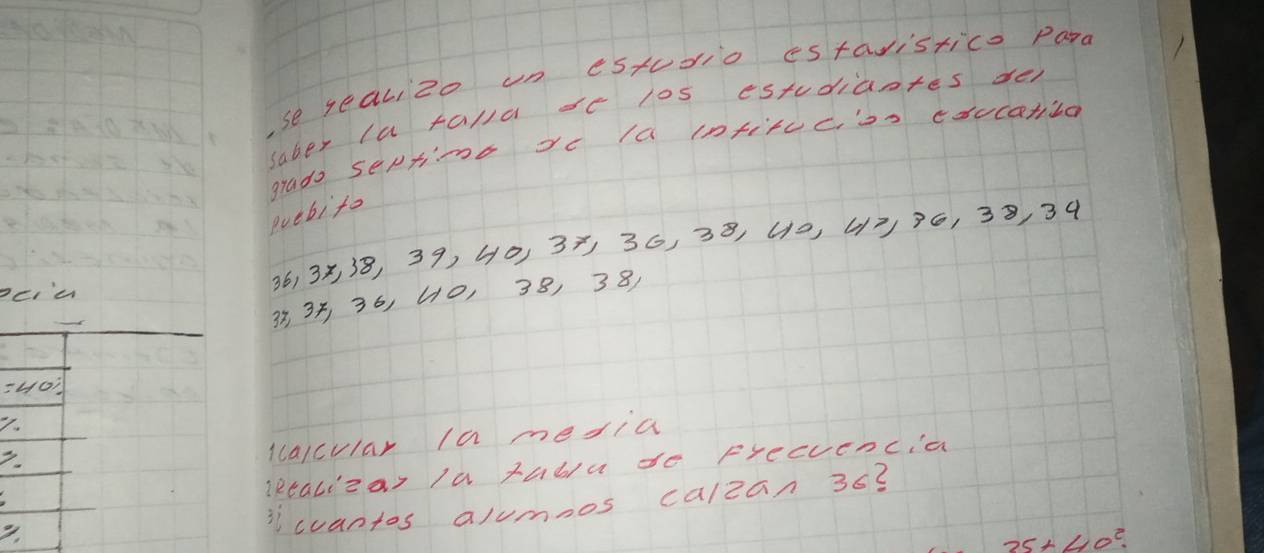 .se realizo un estudio estadistico Para
saber la talla de los estudiantes del
grado septimo de la intitucion educativa
pueblito
36, 37, 38, 39, 40, 37, 36, 38, 40, 42, 36, 38, 39
37, 37, 36, 40, 38, 38,
ocia
=40%
%.
1calcular la media
2Realizar la tabla de Frecuencia
3¿cuantos alumnos calzan 36?
35+40?